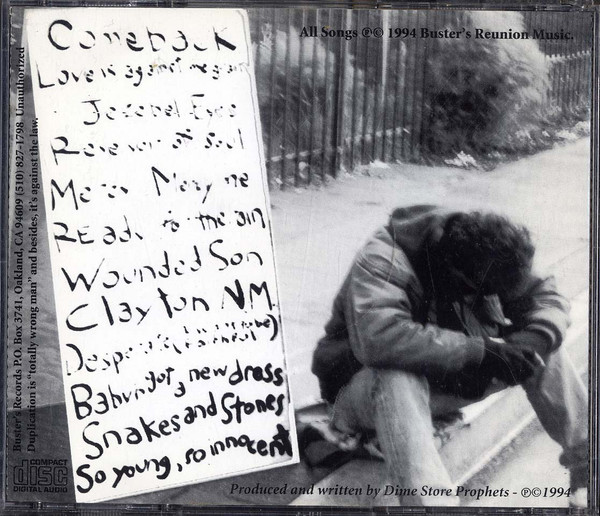 All Songs ℗© 1994 Buster's Reunion Music.
Comeback
Love is against me again
Jezebel Eyes
of Soul
Mercy Mercy me
Ready for the
Wounded Son
Clayton N.M.
Baby's got a new dress
Snakes and Stones
So young, so innocent
Buster's Records P.O. Box 3741, Oakland, CA 94609 (510) 827-1798 Unauthorized
Duplication is "totally wrong man" and besides, it's against the law.
COMPACT
disc
DIGITAL AUDIO
Produced and written by Dime Store Prophets - ℗©1994